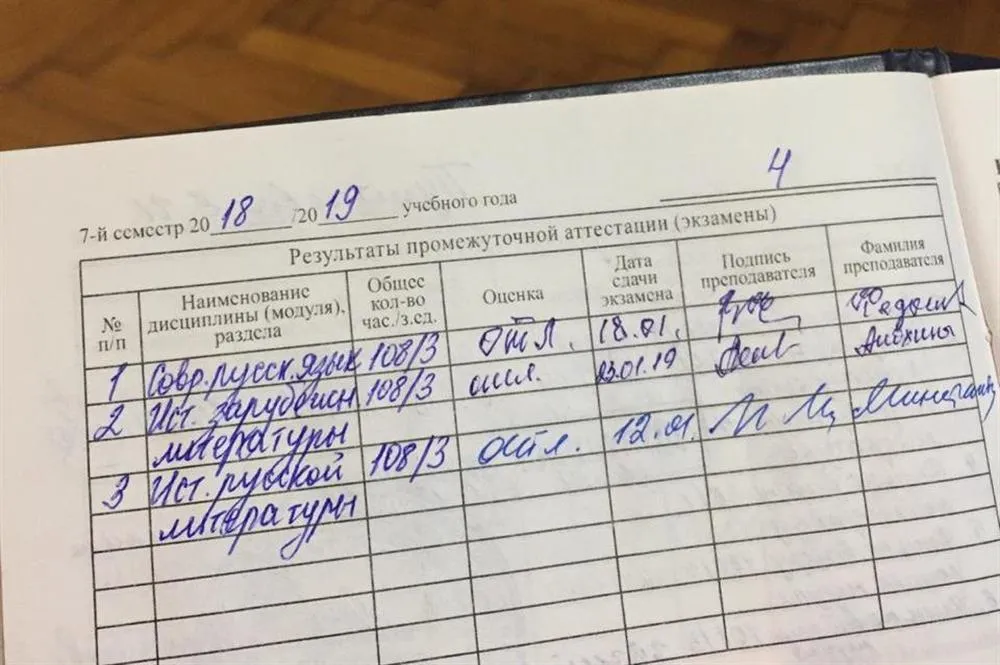 4
7-й семестр 2018/2019 учебного года
Результаты промежуточной аттестации (экзамены)
№ п/п Наименование дисциплины (модуля), раздела Общее кол-во час./з.ед. Оценка Дата сдачи экзамена Подпись преподавателя Фамилия преподавателя
1 Совр. русск. язык 108/3 отл. 18.01.
2 Ист. зарубежн 108/3 отл. 23.01.19
литературы
3 Ист. русской 108/3 отл. 12.01.
литературы